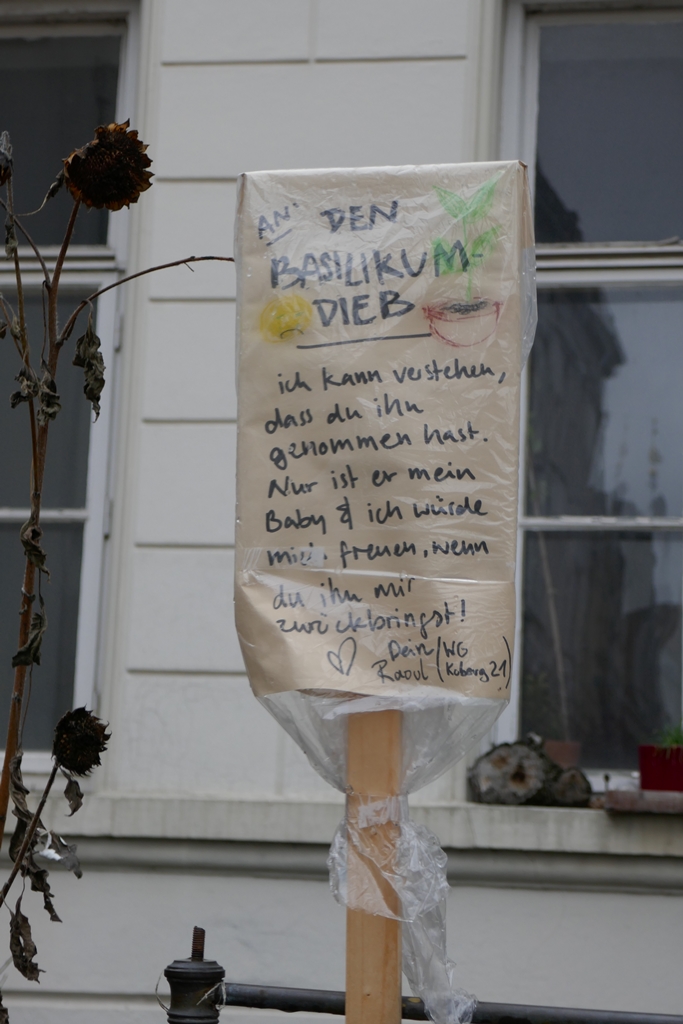 AN' DEN
BASILIKUM-
DIEB
ich kann verstehen,
dass du ihn
genommen hast.
Nur ist er mein
Baby & ich würde
mich freuen, wenn
du ihn mir
zurückbringst!
♡ Dein (WG
Raoul Koburg 21)